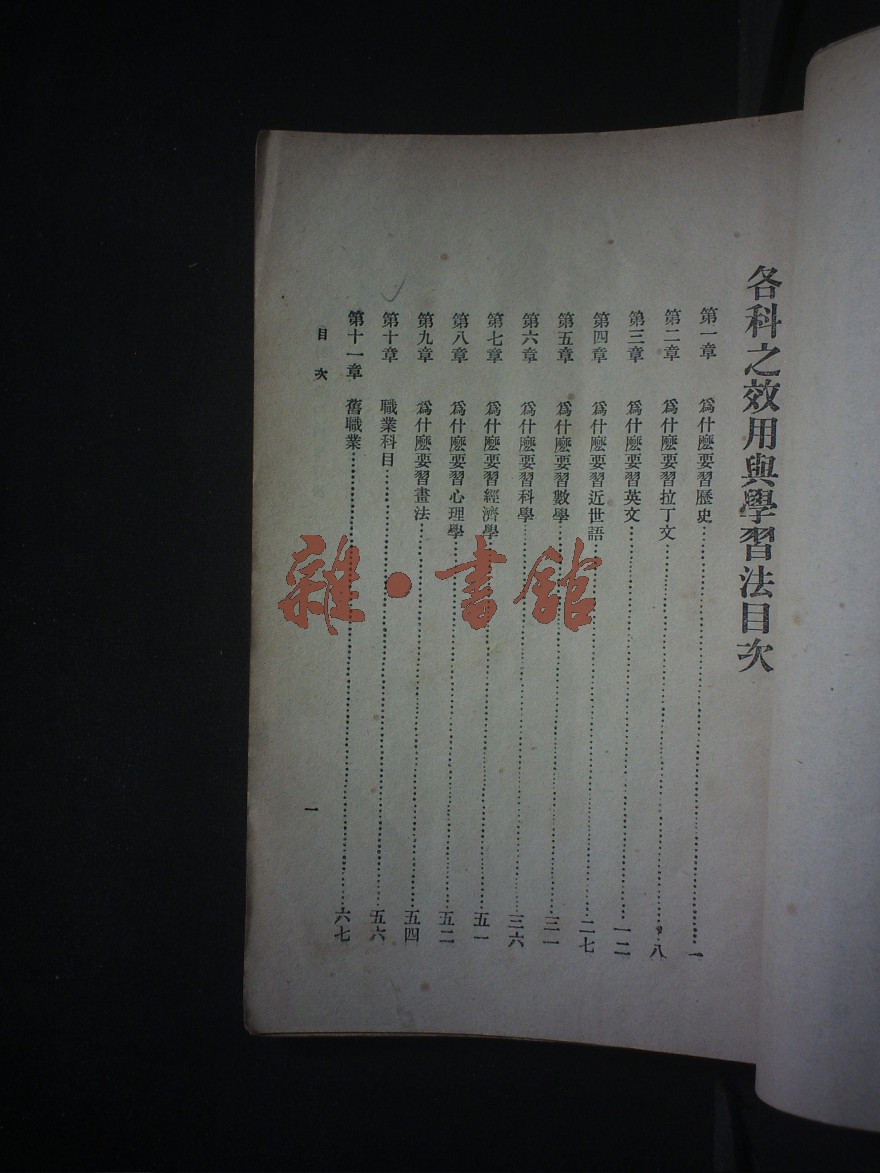 各科之效用與學習法目次
第一章 爲什麽要習歷史 一
第二章 爲什麽要習拉丁文 八
第三章 爲什麽要習英文 一二
第四章 爲什麽要習近世語 二七
第五章 爲什麽要習數學 三一
第六章 爲什麽要習科學 三六
第七章 爲什麽要習經濟學 五一
第八章 爲什麽要習心理學 五二
第九章 爲什麽要習畫法 五四
第十章 職業科目 五六
第十一章 舊職業 六七
目次 一
雜·書館